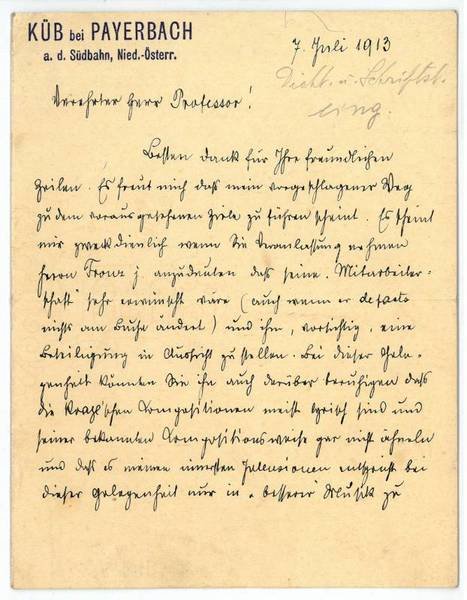 KÜB bei PAYERBACH
a. d. Südbahn, Nied.-Österr.
7. Juli 1913
Dicht. u. Schriftst.
eing.
Verehrter Herr Professor!
Besten Dank für Ihre freundlichen
Zeilen. Es freut mich daß mein vorgeschlagener Weg
zu dem vorausgesehenen Ziele zu führen scheint. Es scheint
mir zweckdienlich wenn Sie Veranlassung nehmen
Herrn Franz j. anzudeuten daß seine „Mitarbeiter-
schaft“ sehr erwünscht wäre (auch wenn er de facto
nichts am Buche ändert) und ihm, vorsichtig, eine
Beteiligung in Aussicht zu stellen. Bei dieser Gele-
genheit könnten Sie ihn auch darüber beruhigen daß
die schen Compositionen meist lyrisch sind und
seiner bekannten Compositionsweise gar nicht ähneln
und daß es meinen innersten Intensionen entspricht bei
dieser Gelegenheit nur in „besserer“ Musik zu